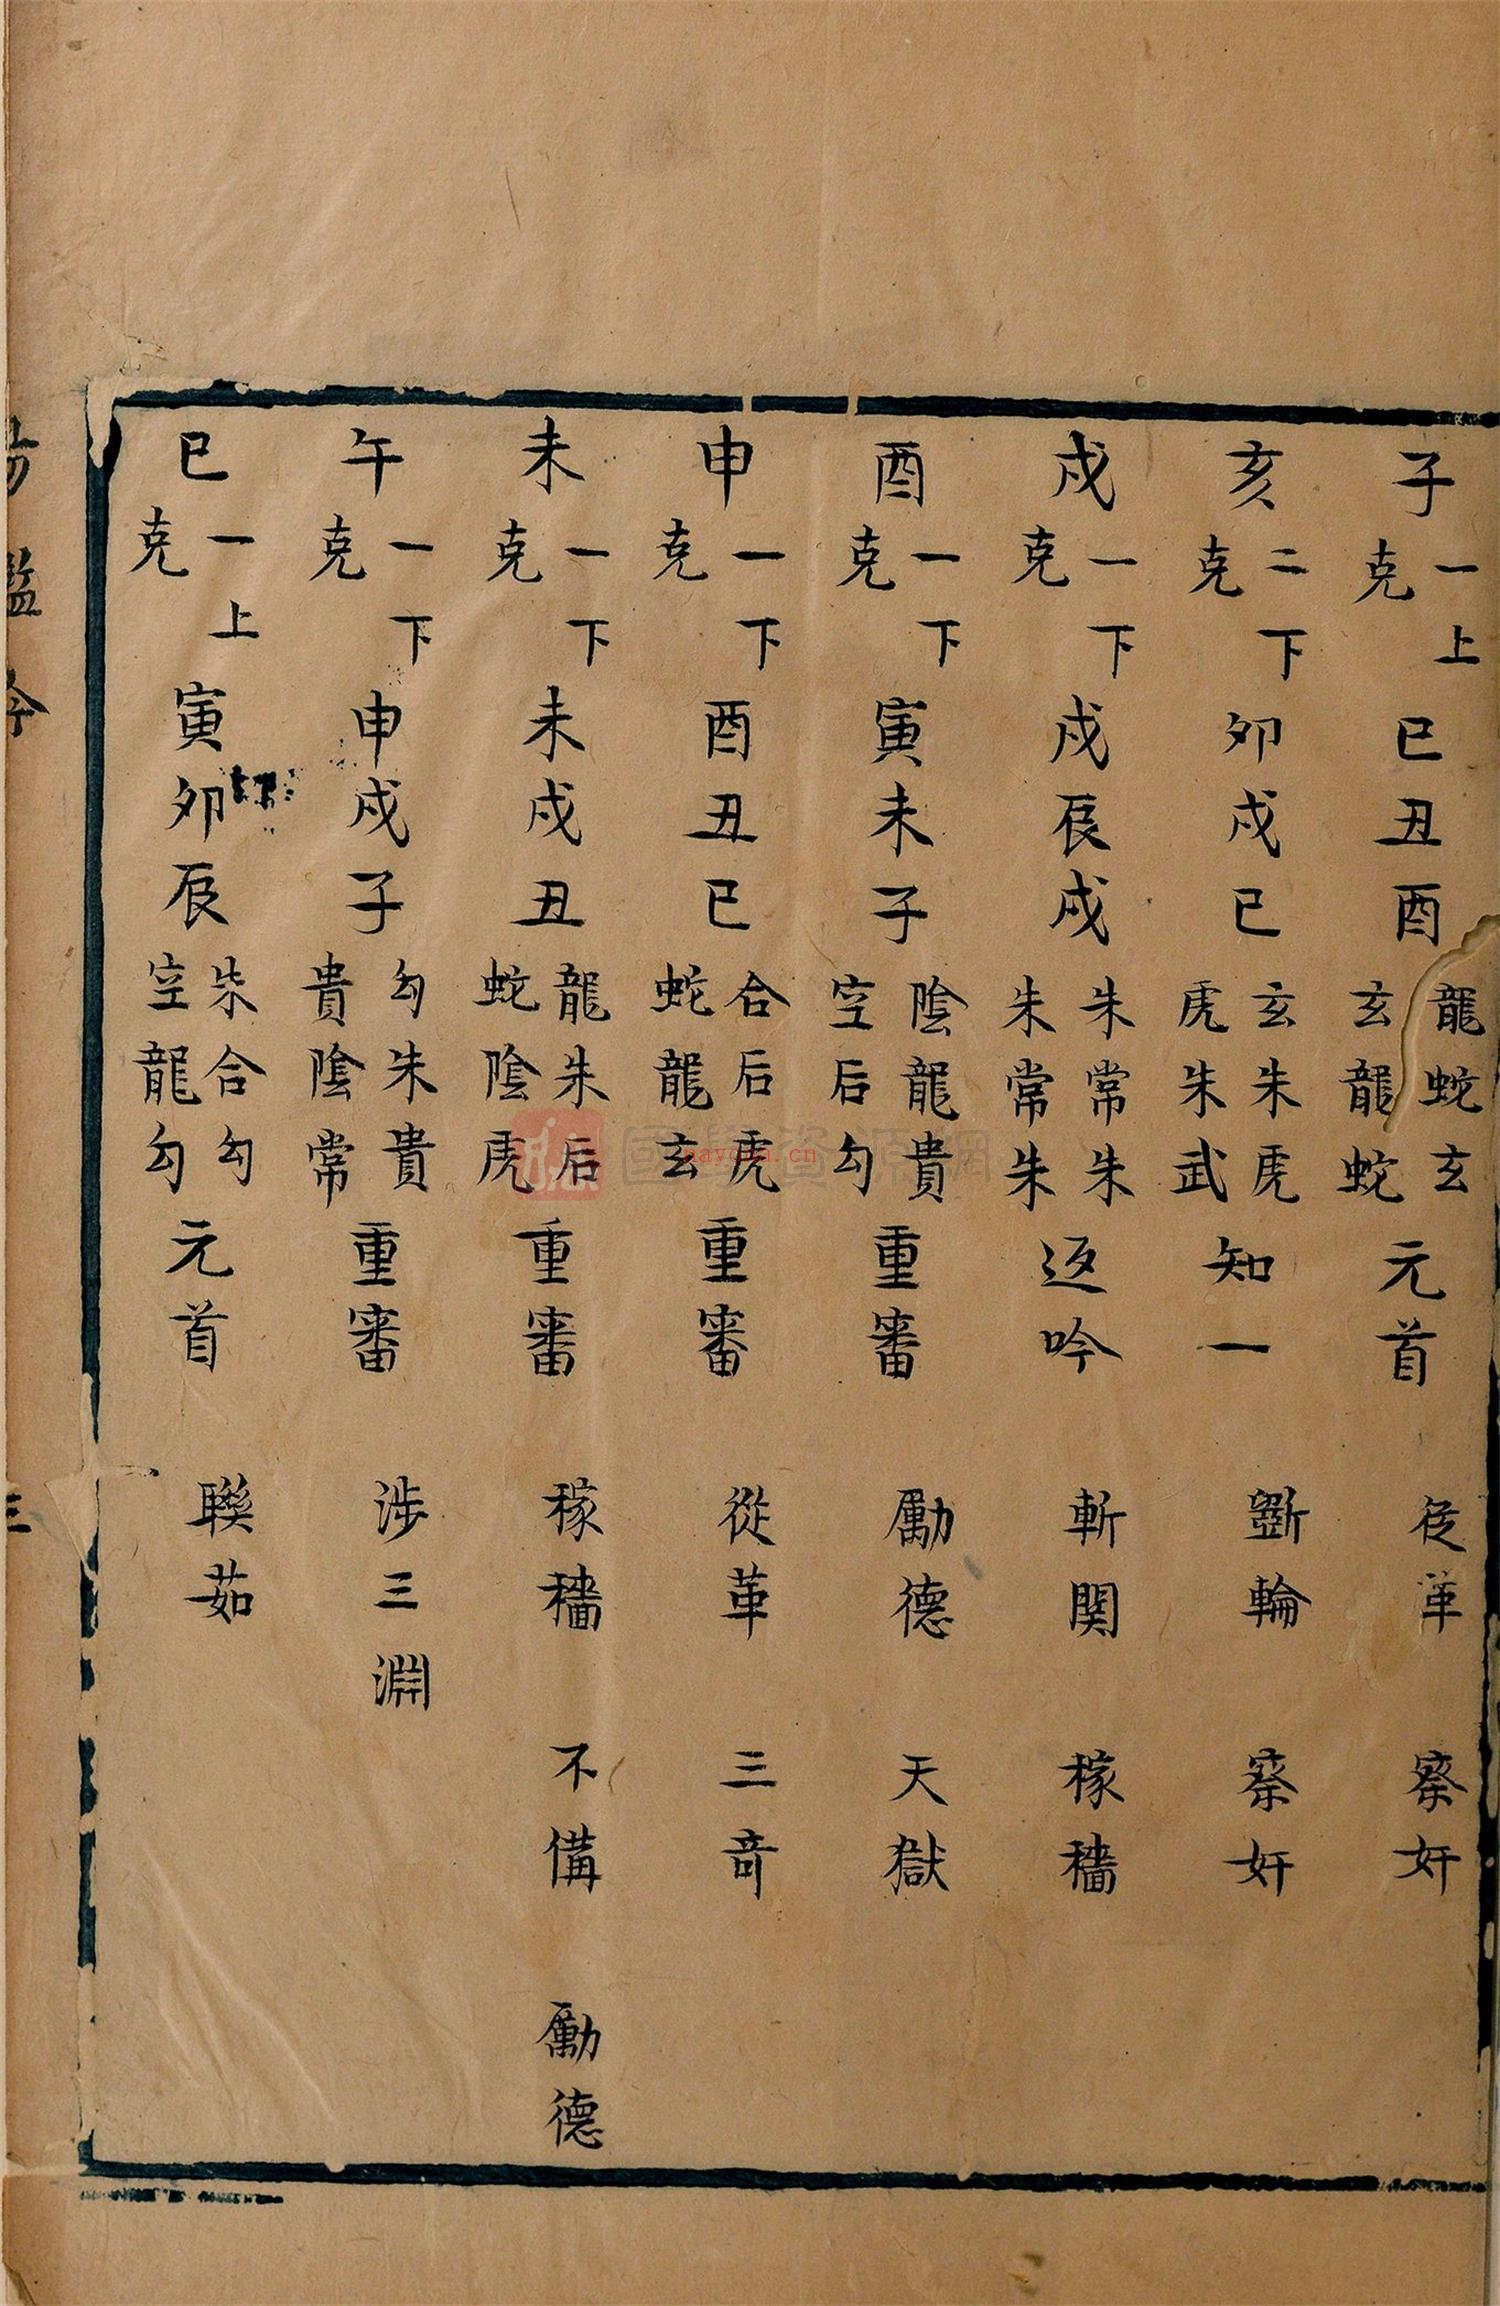 子 一上克 巳丑酉 龍蛇玄 玄龍蛇 元首 從革 察奸
亥 二下克 卯戌巳 玄朱虎 虎朱武 知一 斲輪 察奸
戌 一下克 戌辰戌 朱常朱 朱常朱 返吟 斬関 稼穡
酉 一下克 寅未子 陰龍貴 空后勾 重審 勵德 天獄
申 一下克 酉丑巳 合后虎 蛇龍玄 重審 從革 三奇
未 一下克 未戌丑 龍朱后 蛇陰虎 重審 稼穡 不備 勵德
午 一下克 申戌子 勾朱貴 貴陰常 重審 涉三淵
巳 一上克 寅卯辰 朱合勾 空龍勾 元首 聯茹
三
國學資源網
nayona.cn